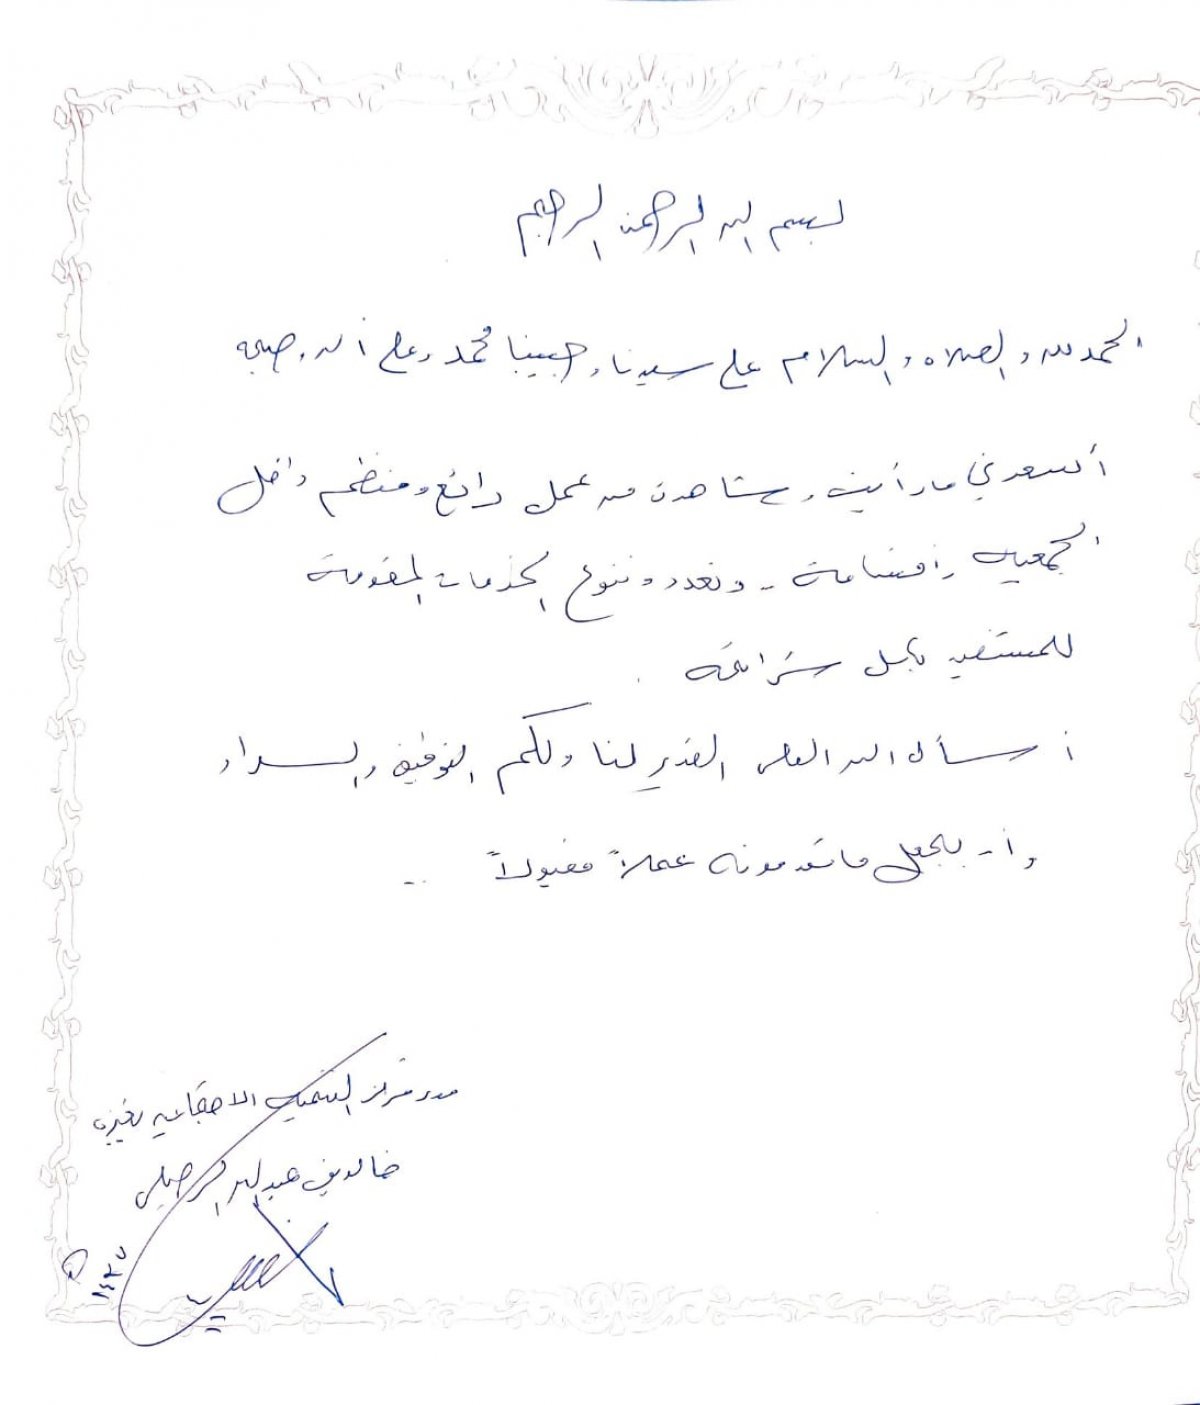 بسم الله الرحمن الرحيم
الحمد لله والصلاه والسلام على سيدنا وحبيبنا محمد وعلى آله وصحبه
أسعدني ما رأيت وشاهدت من عمل رائع ومنظم داخل
الجمعيه وأقسامه - وتعدد وتنوع الخدمات المقدمة
للمستفيد بكل شرائحة .
أسأل الله العلي القدير لنا ولكم التوفيق والسداد
وأن يجعل ما تقدمونه عملاً مقبولاً ..
مدير مركز التنميه الاجتماعيه
خالد بن عبد الله الرحيلي